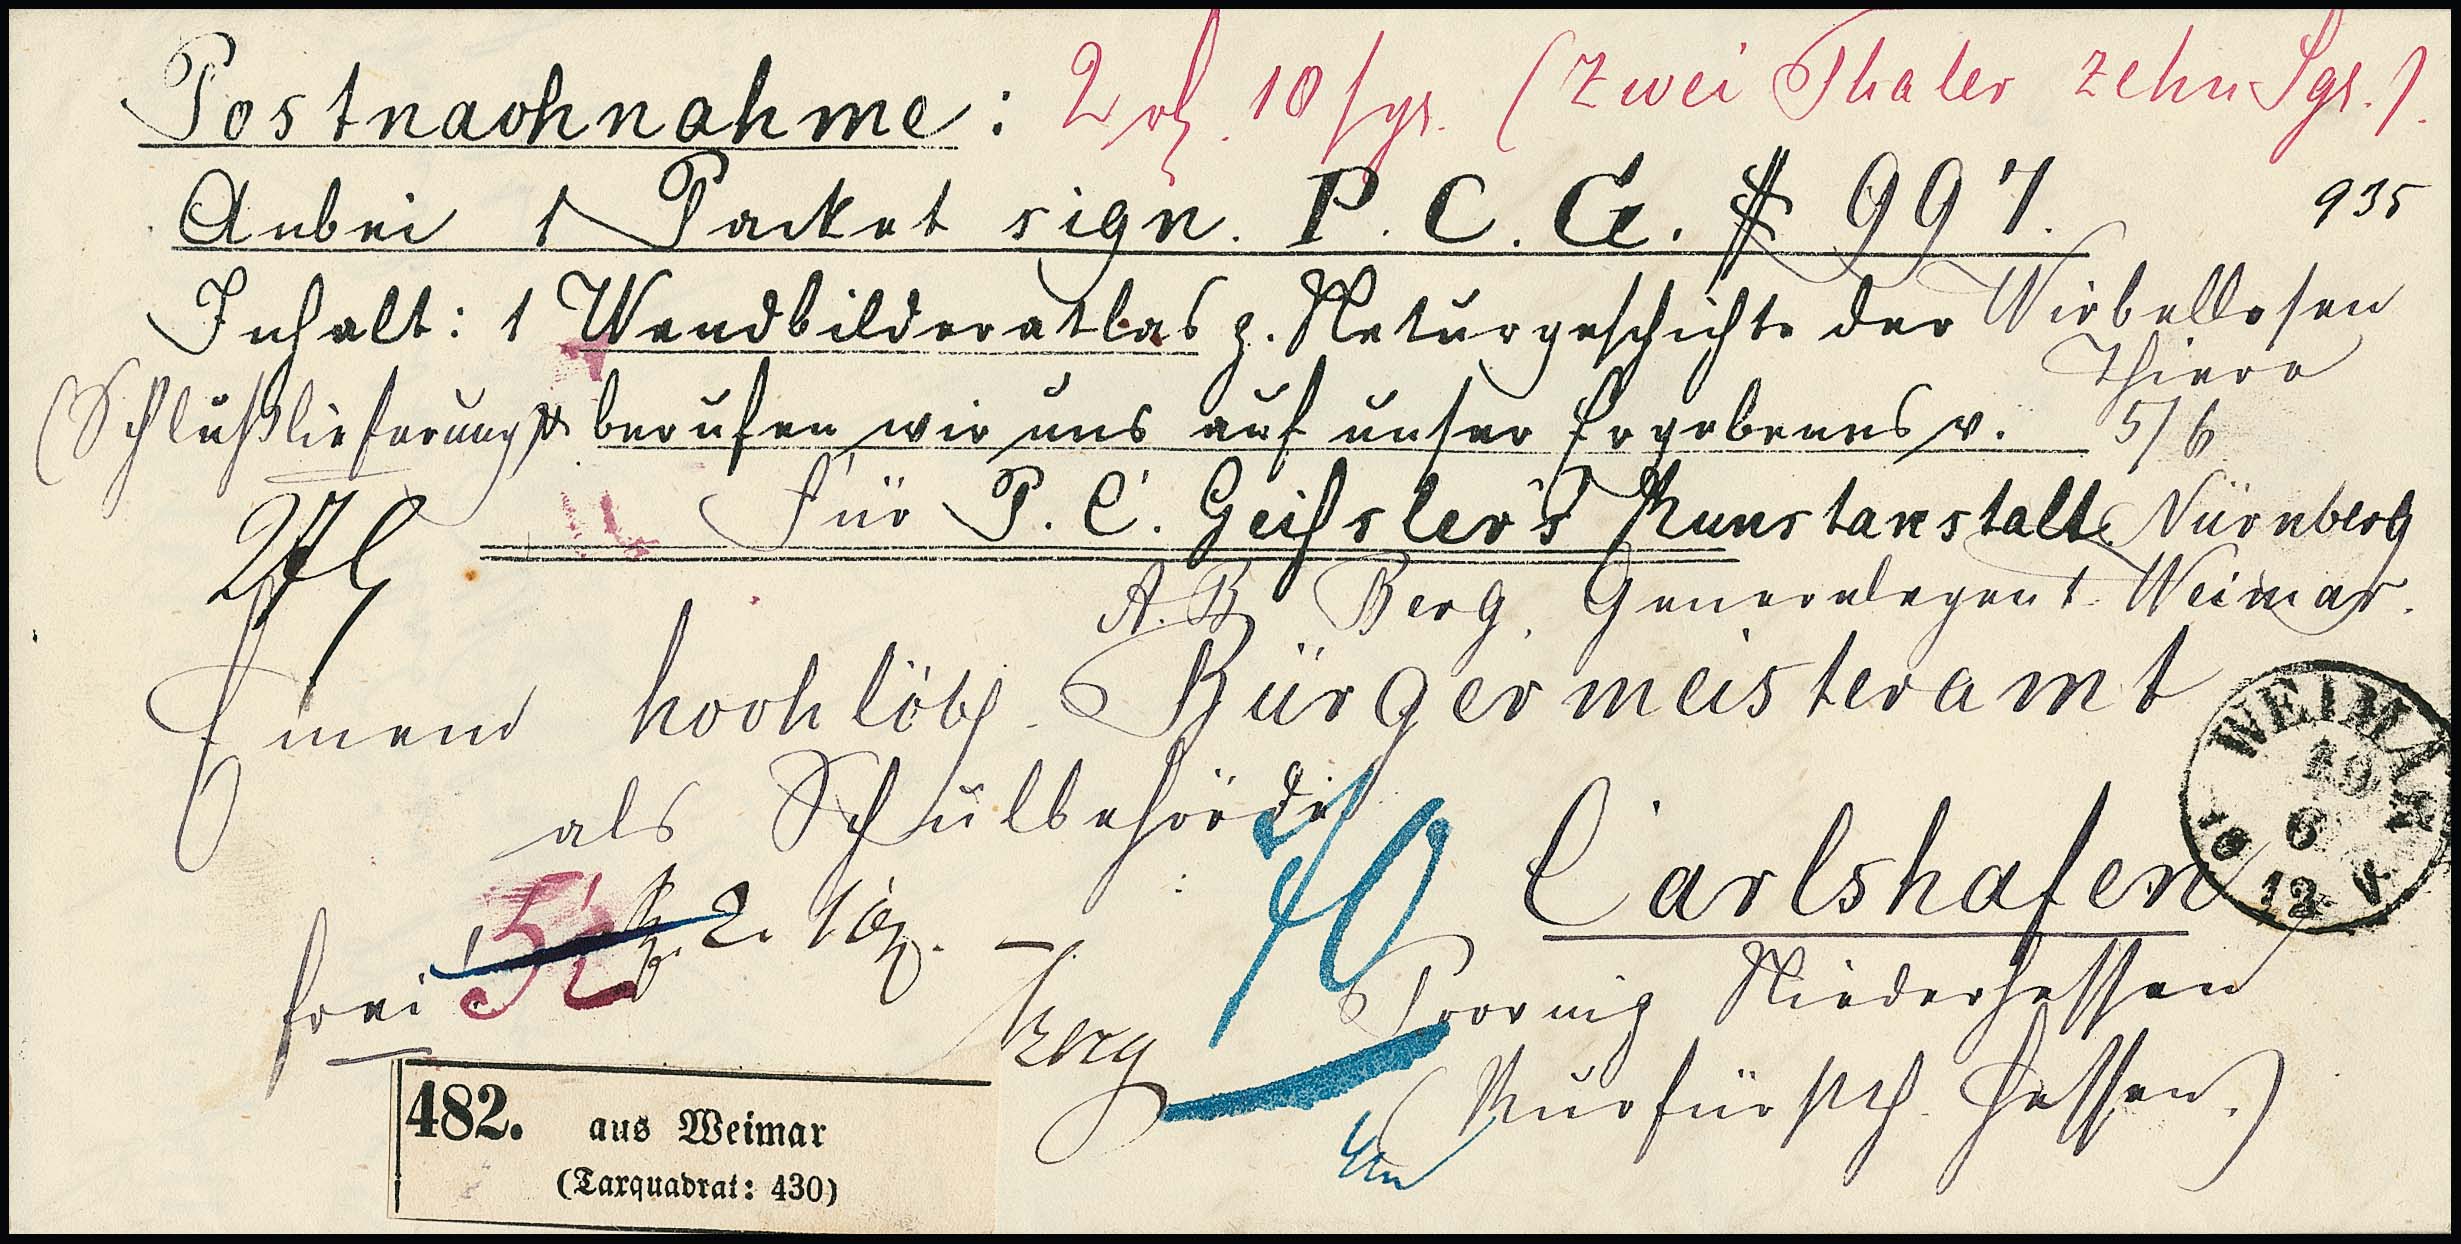 Postnachnahme: 2 rℓ. 10 sgr. (Zwei Thaler zehn Sgr.)
Anbei 1 Packet sign. P. C. G. # 997.
935
Inhalt: 1 Wandbilderatlas z. Naturgeschichte der Wirbellosen
Thiere
(Schlußlieferung) & berufen wir uns auf unser Ergebenes v. 5/6
Für P. C. Geißler's Kunstanstalt Nürnberg
A. B. Berg, Generalagent Weimar.
Einem hochlöbl. Bürgermeisteramt
als Schulbehörde
Carlshafen
WEIMAR
10 6
12
frei
40
Berg
Provinz Niederhessen
(Kurfürstth. Hessen.)
482. aus Weimar
(Taxquadrat: 430)